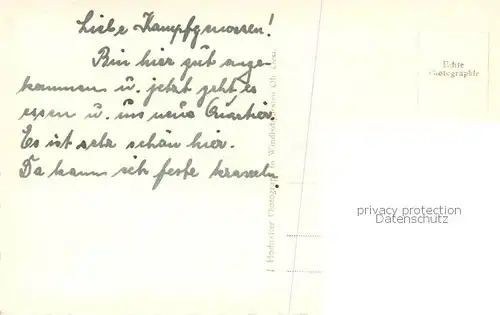 Liebe Kampfgenossen!
Bin hier gut ange-
kommen u. jetzt geht es
essen u. ins neue Quartier.
Es ist sehr schön hier.
Da kann ich feste kraxeln.
Echte
Photographie
J. Hofmeister Photograph in Windischgarsten Ob. Öst.
privacy protection
Datenschutz